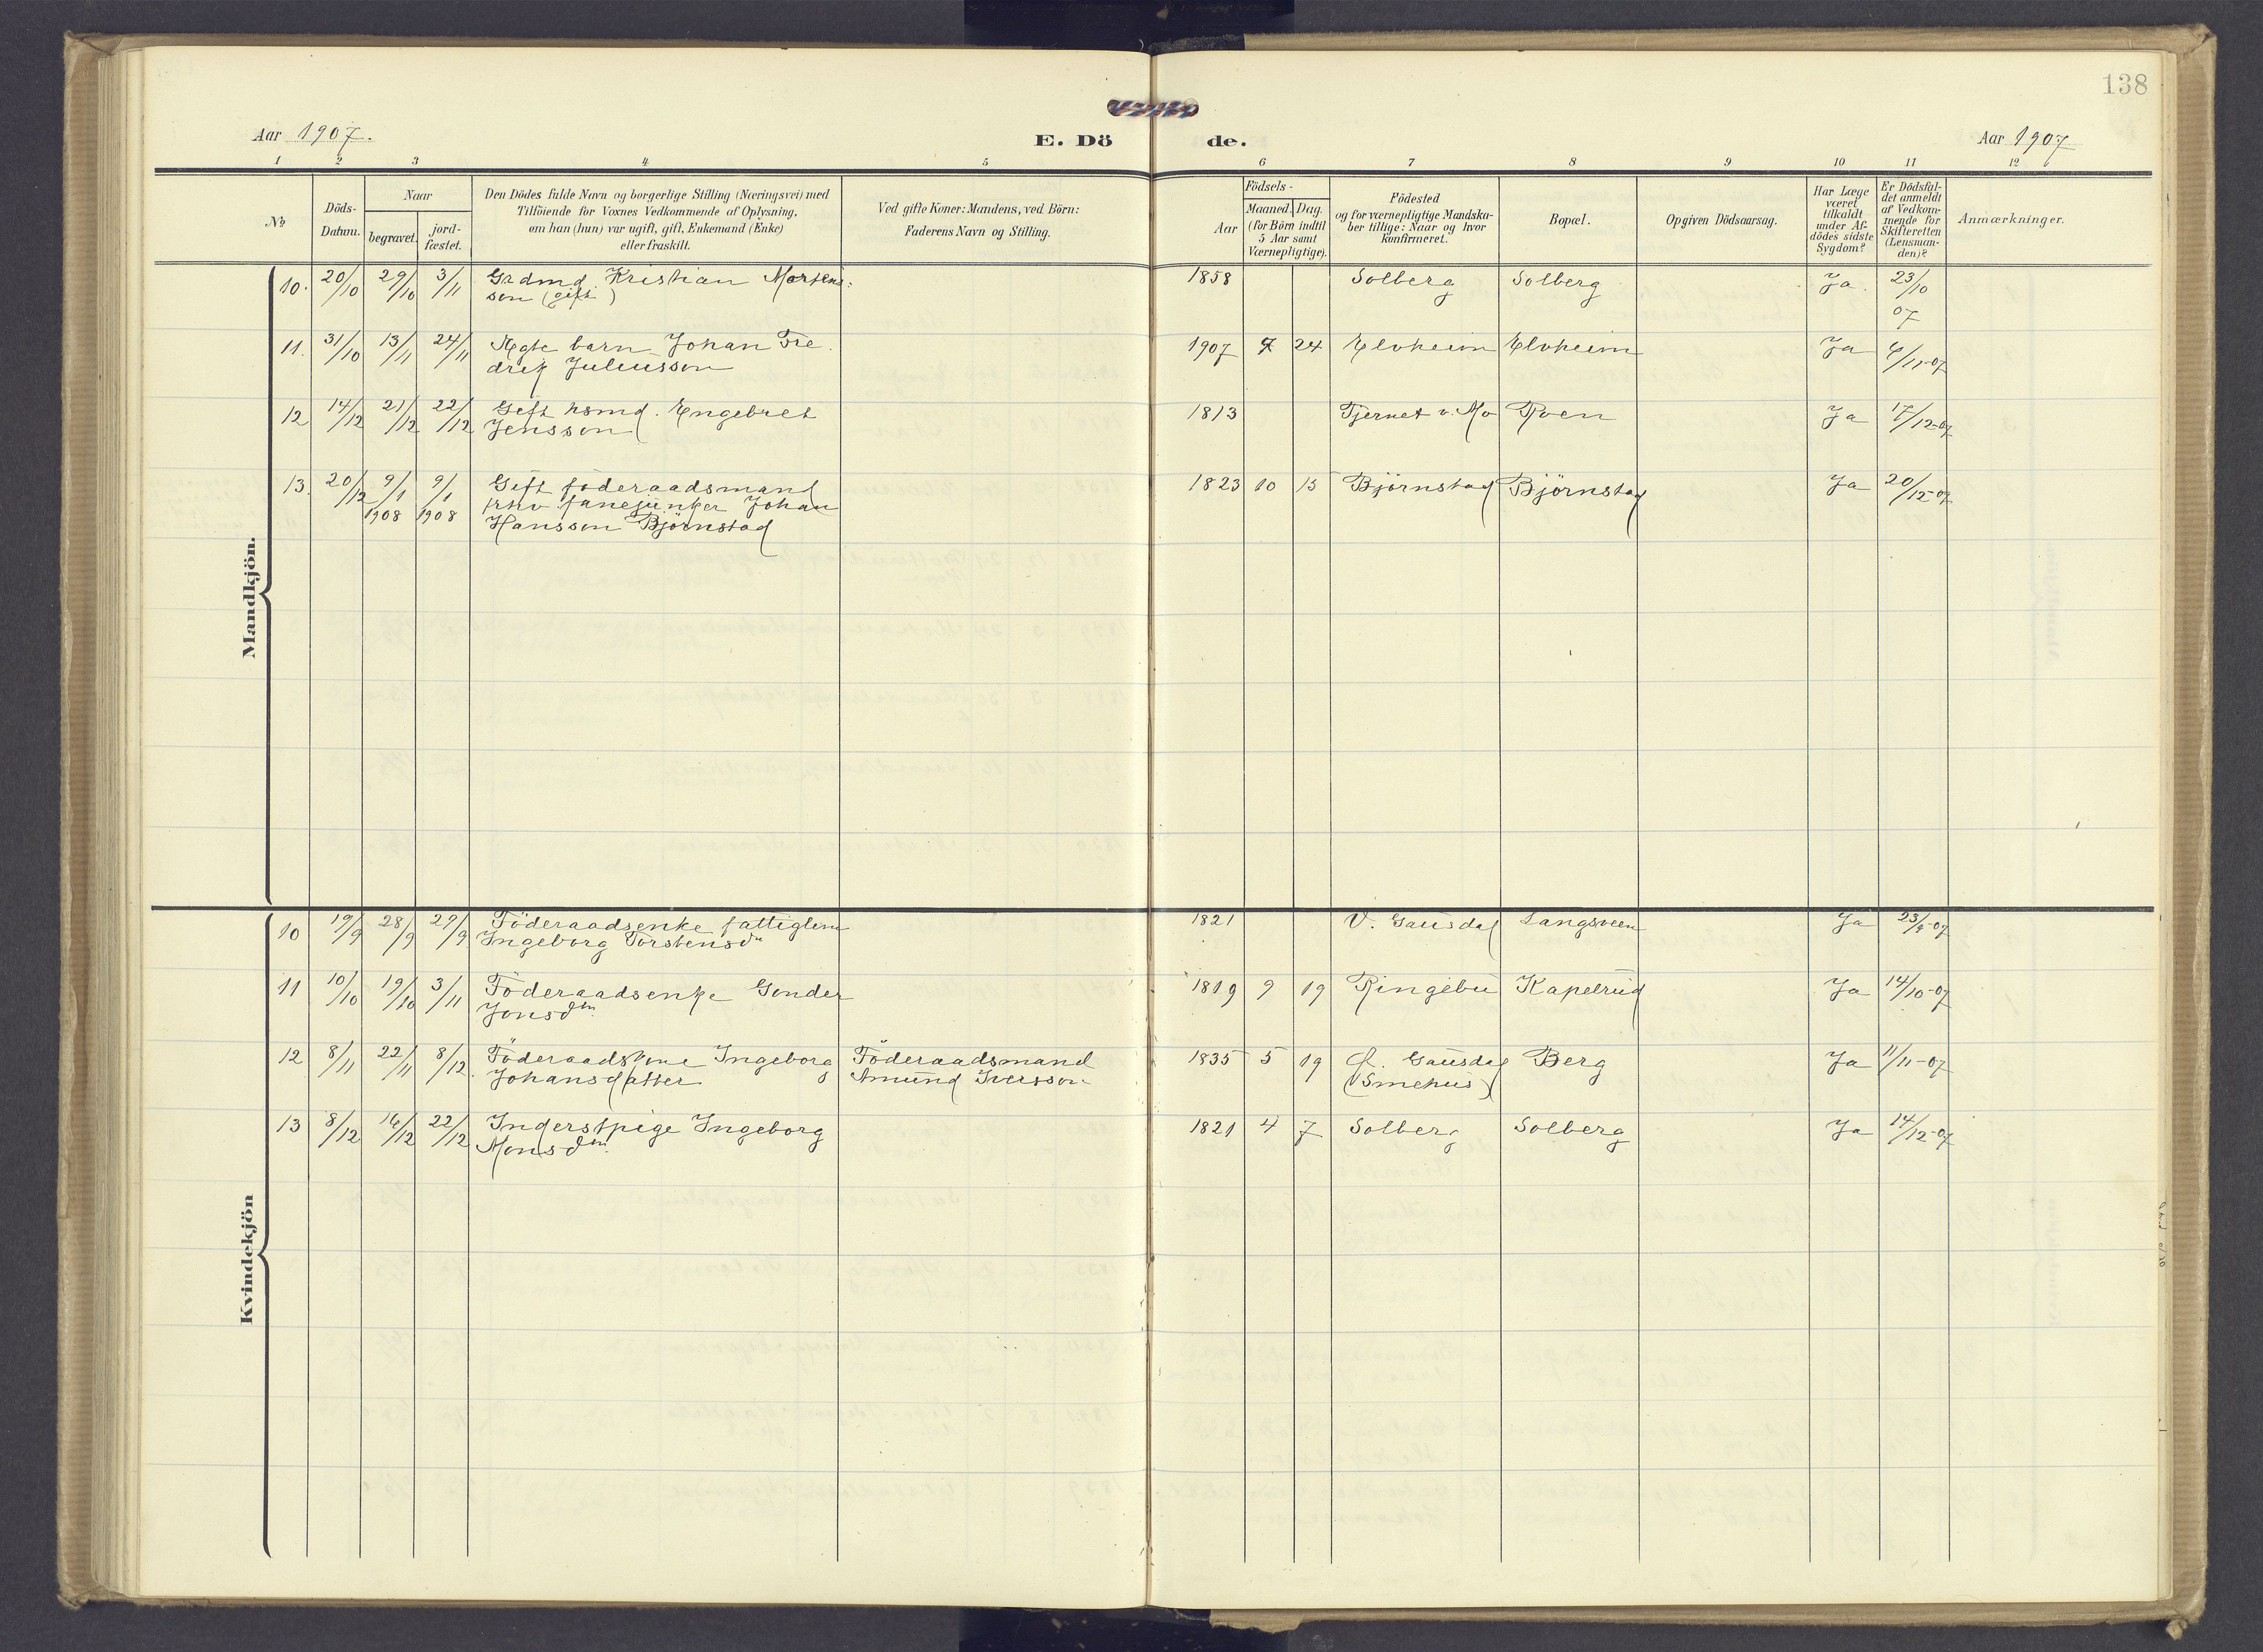 138
Aar 1907.
E. Dö de.
Aar 1907
1 2 3 4 5 6 7 8 9 10 11 12
No
Döds-
Datum.
Naar
begravet.
jord-
fæstet.
Den Dödes fulde Navn og borgerlige Stilling (Næringsvei) med
Tilföiende for Voxnes Vedkommende af Oplysning,
om han (hun) var ugift, gift, Enkemand (Enke)
eller fraskilt.
Ved gifte Koner: Mandens, ved Börn:
Faderens Navn og Stilling.
Födsels-
Aar
Maaned. Dag.
(for Börn indtil
5 Aar samt
Værnepligtige).
Födested
og for værnepligtige Mandska-
ber tillige: Naar og hvor
konfirmeret.
Bopæl.
Opgiven Dödsaarsag.
Har Læge
været
tilkaldt
under Af-
dödes sidste
Sygdom?
Er Dödsfal-
det anmeldt
af Vedkom-
mende for
Skifteretten
(Lensman-
den)?
Anmærkninger.
Mandkjön.
10. 20/10 29/10 3/11 Grdmd. Kristian Mortens- 1858 Solberg Solberg Ja. 23/10
son (gift) 07
11. 31/10 13/11 24/11 Ægte barn Johan Fre- 1907 7 24 Elvheim Elvheim Ja 6/11-07
drik Juliusson
12 14/12 21/12 22/12 Gift hsmd. Engebret 1813 Tjernet v. Mo Roen Ja 17/12-07
Jensson
13. 20/12 9/1 9/1 Gift föderaadsmand 1823 10 15 Björnstad Björnstad Ja 20/12-07
1908 1908 fhv fanejunker Johan
Hansson Björnstad
Kvindekjön
10 19/9 28/9 29/9 Föderaadsenke fattiglem 1821 V. Gausdal Langsveen Ja 23/9-07
Ingeborg Torstensdtr
11 10/10 19/10 3/11 Föderaadsenke Gonder 1819 9 19 Ringebu Kapelrud Ja 14/10-07
Jonsdtr.
12 8/11 22/11 8/12. Föderaadskone Ingeborg Föderaadsmand 1835 5 19 Ö. Gausdal Berg Ja 11/11-07
Johansdatter Amund Iversson (Smehus)
13 8/12 16/12 22/12 Inderstpige Ingeborg 1821 4 7 Solberg Solberg Ja 14/12-07
Monsdtr.